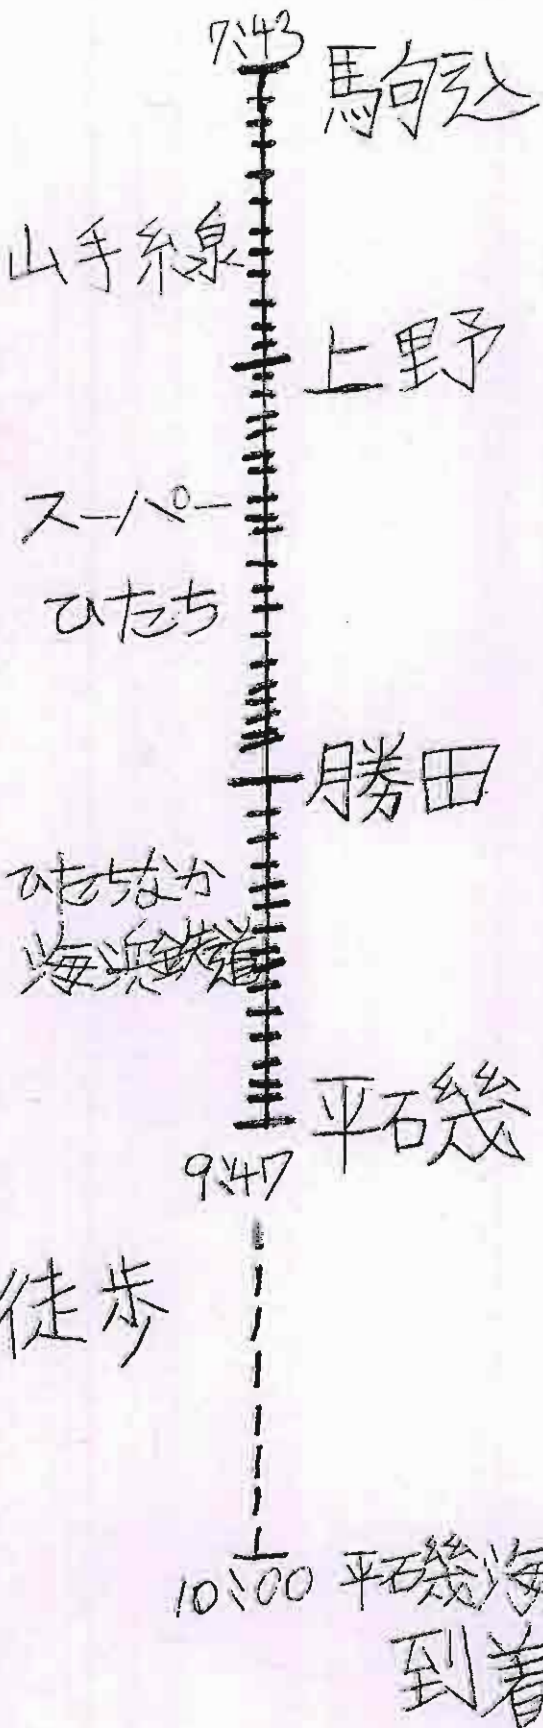 7:43
駒込
山手線
上野
スーパー
ひたち
勝田
ひたちなか
海浜鉄道
平磯
9:47
徒歩
10:00 平磯海
到着